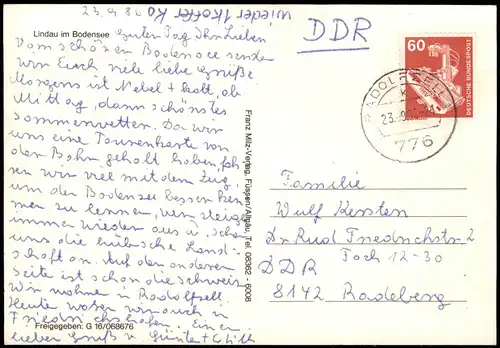 23.9.80 wieder 1 Koffer Ka
DDR
Lindau im Bodensee
Guten Tag Ihr Lieben
Vom schönen Bodensee senden
wir Euch viele liebe Grüße
Morgens ist Nebel + kalt, ab
Mittag, dann schönstes
Sommerwetter. Da wir
uns eine Tourenkarte von
der Bahn geholt haben, fah
ren wir viel mit dem Zug
um den Bodensee besser ken
nen zu lernen,
immer wieder aus u. schau
uns die hübsche Land-
schaft an. Auf der anderen
Seite ist schon die Schweiz
Wir wohnen in Radolfzell
Heute waren wir auch in
Friedrichshafen. Einen
lieben Gruß v. Günter +
Freigegeben: G 16/068676
Franz Milz-Verlag, Füssen/Allgäu, Tel. 08362 - 6008
60
DEUTSCHE BUNDESPOST
RADOLFZELL
23.-9.80
776
Familie
Wulf Kersten
Dr. Rud Friedrichstr 2
Fach 12-30
DDR
8142 Radeberg